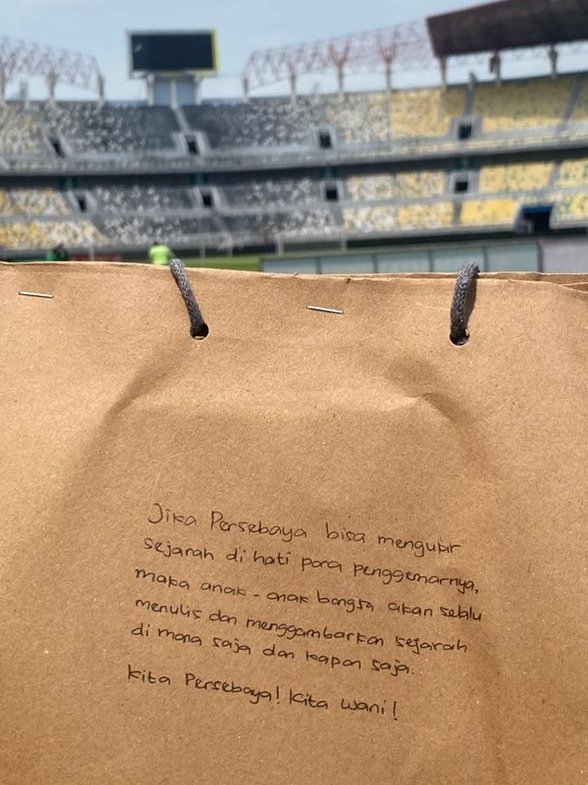 Jika Persebaya bisa mengukir
sejarah di hati para penggemarnya,
maka anak-anak bangsa akan selalu
menulis dan menggambarkan sejarah
di mana saja dan kapan saja.
Kita Persebaya! Kita Wani!